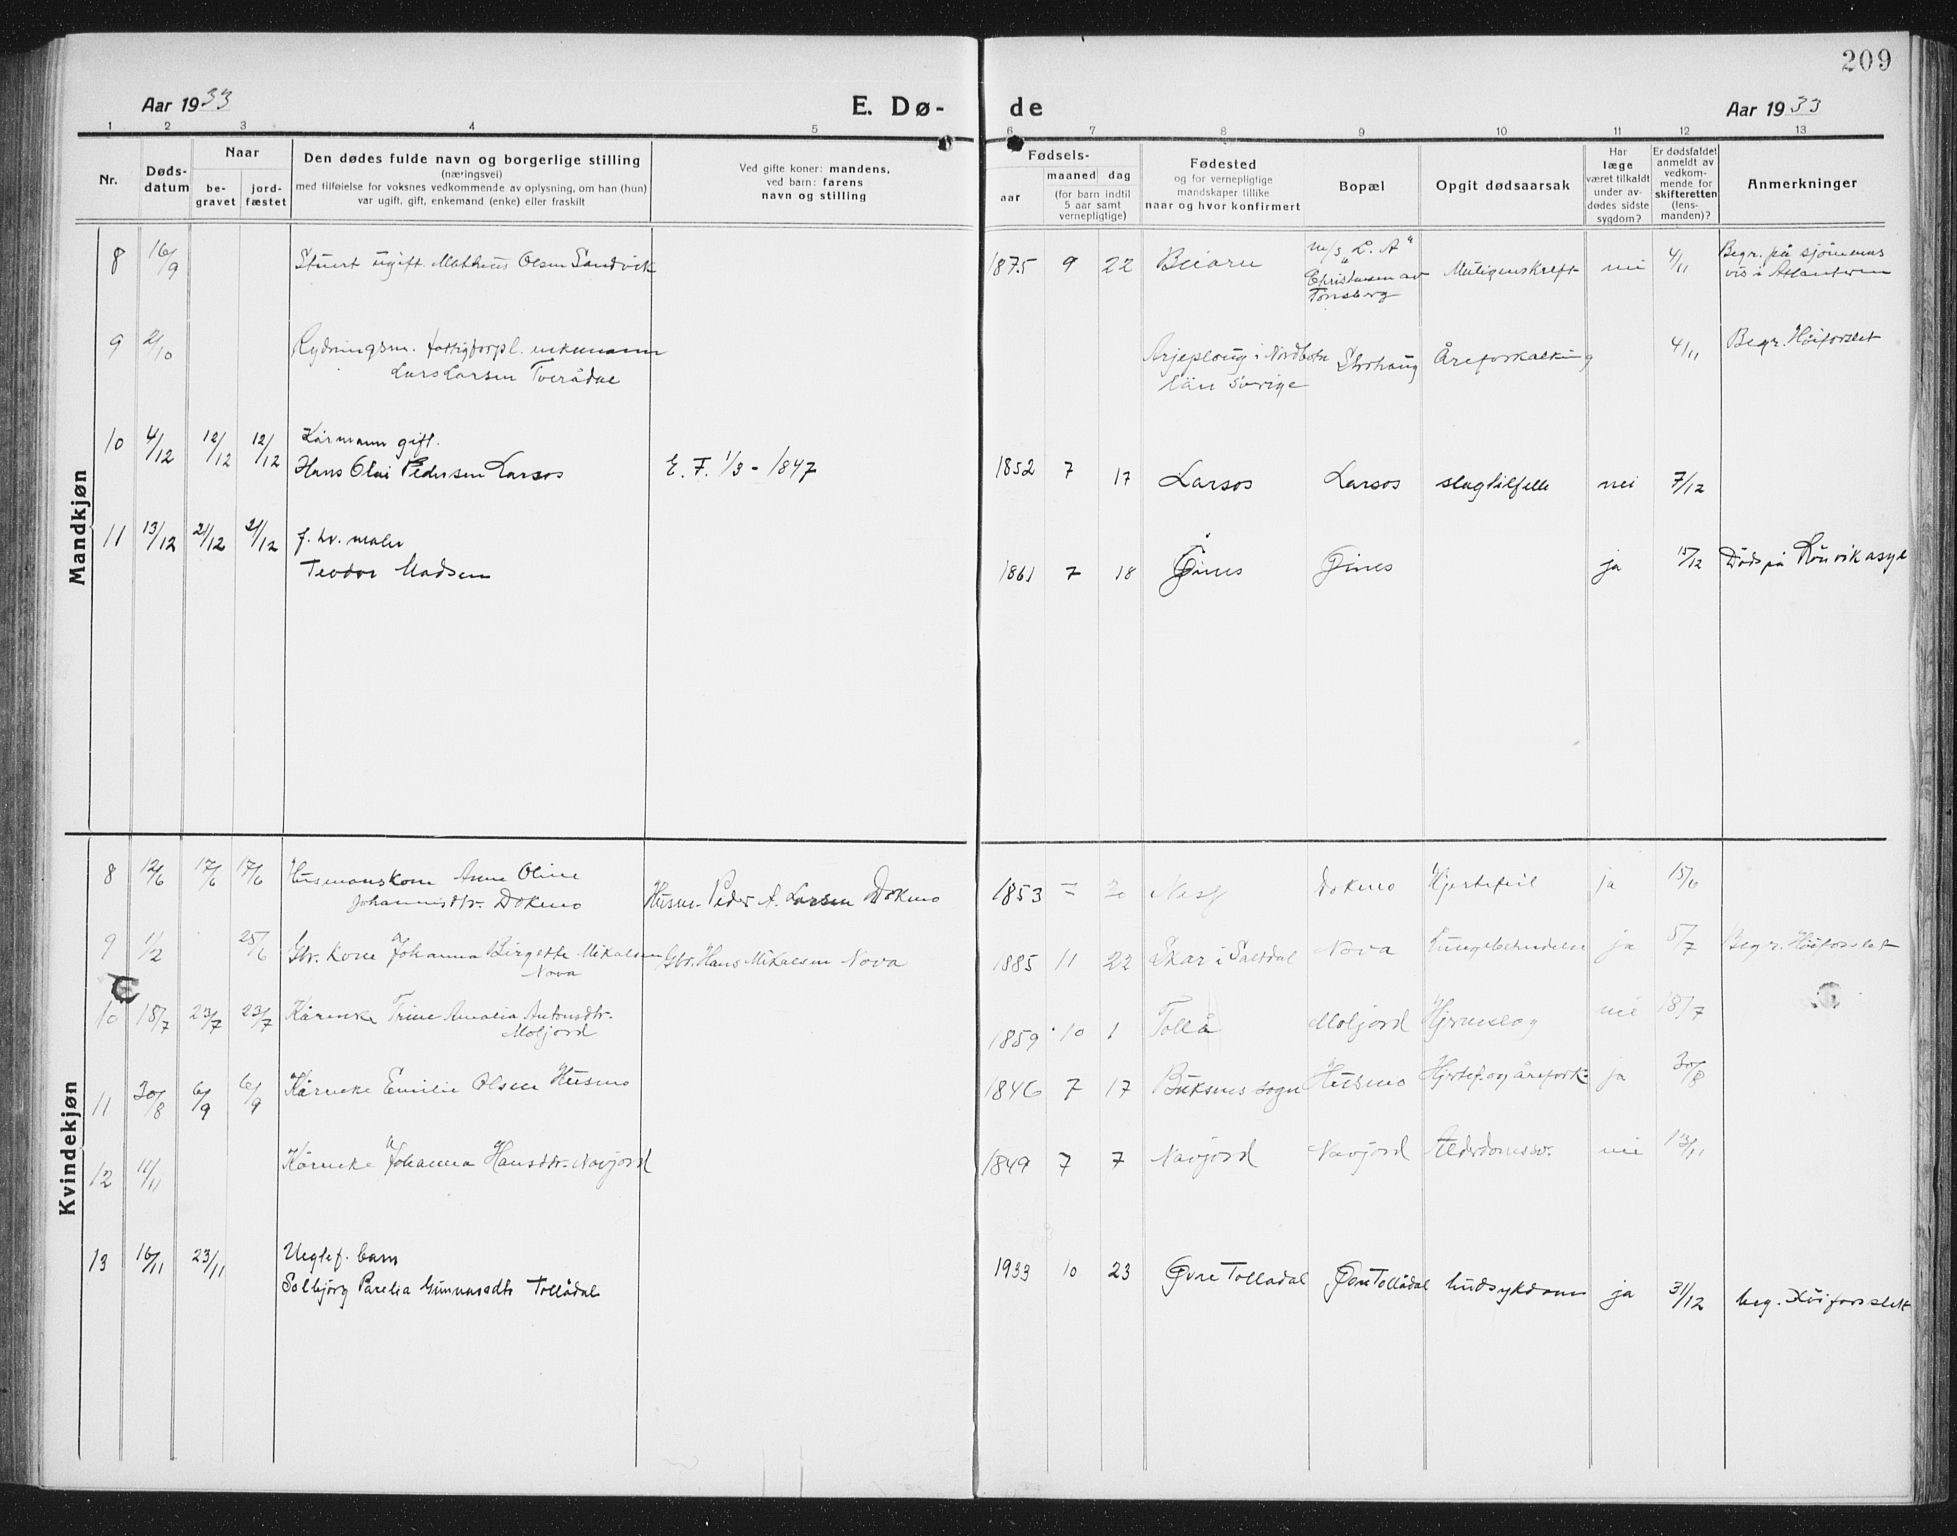 209
Aar 1933
E. Dø-
de
Aar 1933
1 2 3 4 5 6 7 8 9 10 11 12 13
Nr.
Døds-
datum
Naar
be-
gravet
jord-
fæstet
Den dødes fulde navn og borgerlige stilling
(næringsvei)
med tilføielse for voksnes vedkommende av oplysning, om han (hun)
var ugift, gift, enkemand (enke) eller fraskilt
Ved gifte koner: mandens,
ved barn: farens
navn og stilling
Fødsels-
aar
maaned dag
(for barn indtil
5 aar samt
vernepligtige)
Fødested
og for vernepligtige
mandskaper tillike
naar og hvor konfirmert
Bopæl
Opgit dødsaarsak
Har
læge
været tilkaldt
under av-
dødes sidste
sygdom?
Er dødsfaldet
anmeldt av
vedkom-
mende for
skifteretten
(lens-
manden)?
Anmerkninger
Mandkjøn
8 16/9 Stuert ugift Mathias Olsen Sandvik 1875 9 22 Beiarn m/s "L. A" Christensen av Tønsberg nei 4/11 Begr. på sjømenns
vis i Atlanteren
9 2/10 Rydningsm. fattigforpl. enkemann
Lars Larsen Tverådal Arjeploug i Nordboten
län Sverige Storhaug Åreforkalkning 4/11 Begr. Høiforslet
10 4/12 12/12 12/12 Kårmann gift.
Hans Olai Pedersen Larsos E. F. 1/3 - 1847 1852 7 17 Larsos Larsos slagtilfelle nei 7/12
11 13/12 21/12 21/12 f. hv. maler
Teodor Madsen 1861 7 18 Øines Øines ja 15/12 Døds på Rønvik asyl
Kvindekjøn
8 12/6 17/6 17/6 Husmanskone Anne Oline
Johannisdtr. Dokmo Husm. Peder A. Larsen Dokmo 1853 7 20 Nesf Dokmo Hjertefeil ja 15/6
9 1/2 25/6 Gbr. kone Johanna Birgette Mikalsen
Nova Gbr. Hans Mikalsen Nova 1885 11 22 Skar i Saltdal Nova Lungebetendelse ja 5/7 Begr. Høiforslet
10 18/7 23/7 23/7 Kårenke Trine Amalia Antonsdtr.
Moljord 1859 10 1 Tollå Moljord Hjerneslag nei 18/7
11 30/8 6/9 6/9 Kårenke Emilie Olsen Husmo 1846 7 17 Buksnes sogn Husmo Hjertef. og årefork. ja 30/8
12 11/11 Kårenke Johanna Hansdtr. Navjord 1849 7 7 Navjord Navjord Alderdomssv. nei 13/11
13 16/11 23/11 Uegtef. barn
Solbjørg Parelia Gunnarsdtr Tollådal 1933 10 23 Øvre Tolladal Øvre Tollådal hudsykdom ja 31/12 beg. Høiforslett